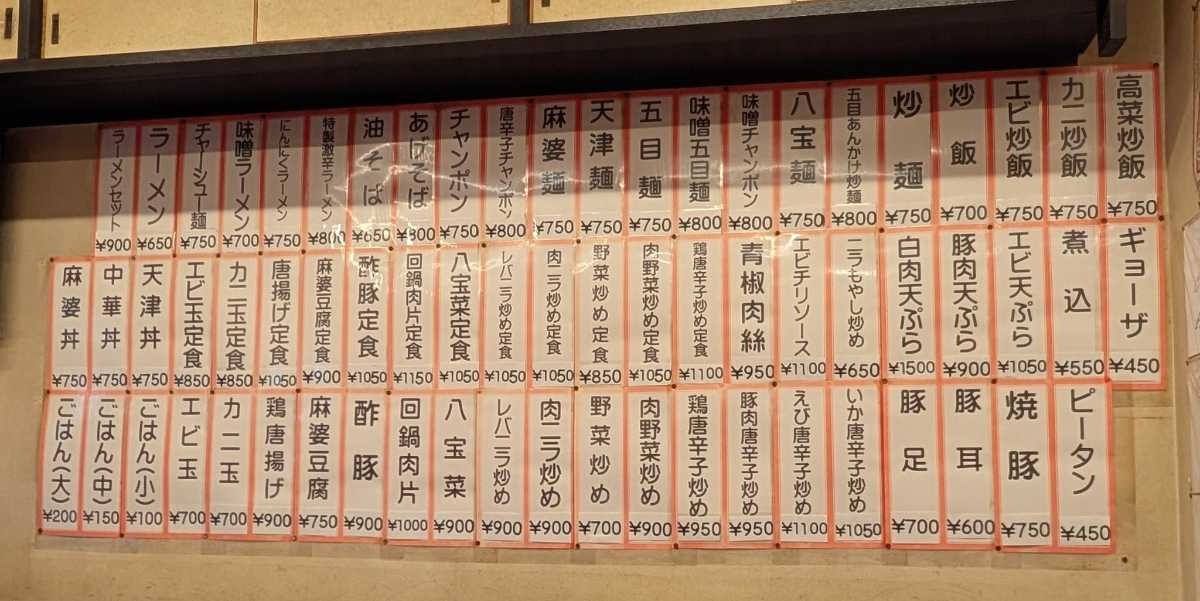 高菜炒飯 ¥750
カニ炒飯 ¥750
エビ炒飯 ¥750
炒飯 ¥700
炒麺 ¥750
五目あんかけ炒麺 ¥800
八宝麺 ¥750
味噌チャンポン ¥800
味噌五目麺 ¥800
五目麺 ¥750
天津麺 ¥750
麻婆麺 ¥750
唐辛子チャンポン ¥800
チャンポン ¥750
あげそば ¥800
油そば ¥650
特製激辛ラーメン ¥800
にんにくラーメン ¥750
味噌ラーメン ¥700
チャーシュー麺 ¥750
ラーメン ¥650
ラーメンセット ¥900
ギョーザ ¥450
煮込 ¥550
エビ天ぷら ¥1050
豚肉天ぷら ¥900
白肉天ぷら ¥1500
ニラもやし炒め ¥650
エビチリソース ¥1100
青椒肉絲 ¥950
鶏唐辛子炒め定食 ¥1100
肉野菜炒め定食 ¥1050
野菜炒め定食 ¥850
肉ニラ炒め定食 ¥1050
レバニラ炒め定食 ¥1050
八宝菜定食 ¥1050
回鍋肉片定食 ¥1150
酢豚定食 ¥1050
麻婆豆腐定食 ¥900
唐揚げ定食 ¥1050
カニ玉定食 ¥850
エビ玉定食 ¥850
天津丼 ¥750
中華丼 ¥750
麻婆丼 ¥750
ピータン ¥450
焼豚 ¥750
豚耳 ¥600
豚足 ¥700
いか唐辛子炒め ¥1050
えび唐辛子炒め ¥1100
豚肉唐辛子炒め ¥950
鶏唐辛子炒め ¥950
肉野菜炒め ¥900
野菜炒め ¥700
肉ニラ炒め ¥900
レバニラ炒め ¥900
八宝菜 ¥900
回鍋肉片 ¥1000
酢豚 ¥900
麻婆豆腐 ¥750
鶏唐揚げ ¥900
カニ玉 ¥700
エビ玉 ¥700
ごはん(小) ¥100
ごはん(中) ¥150
ごはん(大) ¥200